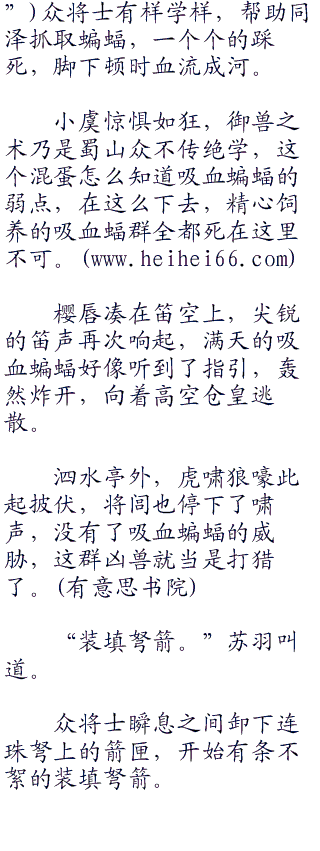 ”)众将士有样学样，帮助同
泽抓取蝙蝠，一个个的踩
死，脚下顿时血流成河。
小虞惊惧如狂，御兽之
术乃是蜀山众不传绝学，这
个混蛋怎么知道吸血蝙蝠的
弱点，在这么下去，精心饲
养的吸血蝠群全都死在这里
不可。(www.heihei66.com)
樱唇凑在笛空上，尖锐
的笛声再次响起，满天的吸
血蝙蝠好像听到了指引，轰
然炸开，向着高空仓皇逃
散。
泗水亭外，虎啸狼嚎此
起披伏，将闾也停下了啸
声，没有了吸血蝙蝠的威
胁，这群凶兽就当是打猎
了。(有意思书院)
“装填弩箭。”苏羽叫
道。
众将士瞬息之间卸下连
珠弩上的箭匣，开始有条不
絮的装填弩箭。